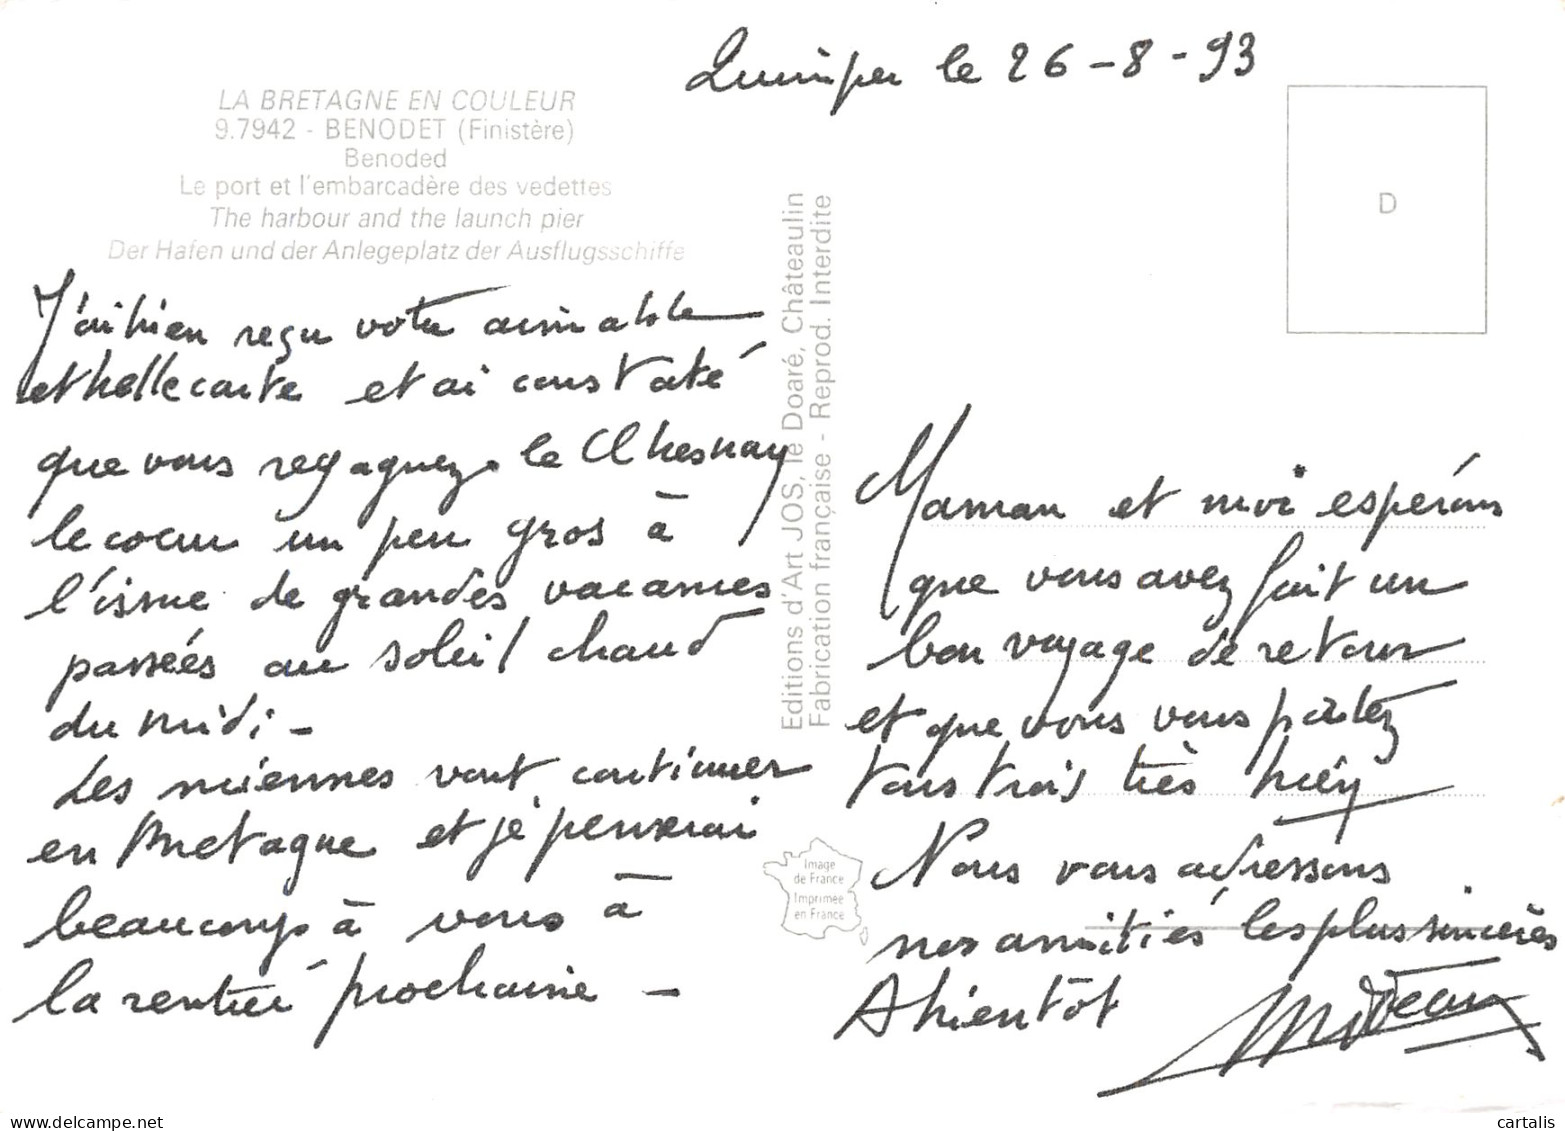 Quimper le 26-8-93
LA BRETAGNE EN COULEUR
9.7942 - BENODET (Finistère)
Benoded
Le port et l'embarcadère des vedettes
The harbour and the launch pier
Der Hafen und der Anlegeplatz der Ausflugsschiffe
J'ai bien reçu votre aimable
et belle carte et ai constaté
que vous regagnez le Chesnay
le coeur un peu gros à
l'issue de grandes vacances
passées au soleil chaud
du midi -
Les miennes vont continuer
en Bretagne et je penserai
beaucoup à vous à
la rentrée prochaine -
Editions d'Art JOS, le Doaré, Châteaulin
Fabrication française - Reprod. Interdite
Image
de France
Imprimée
en France
D
Maman et moi espérons
que vous avez fait un
bon voyage de retour
et que vous vous portez
tous trois très bien
Nous vous adressons
nos amitiés les plus sincères
A bientôt
cartalis
delcampe.net